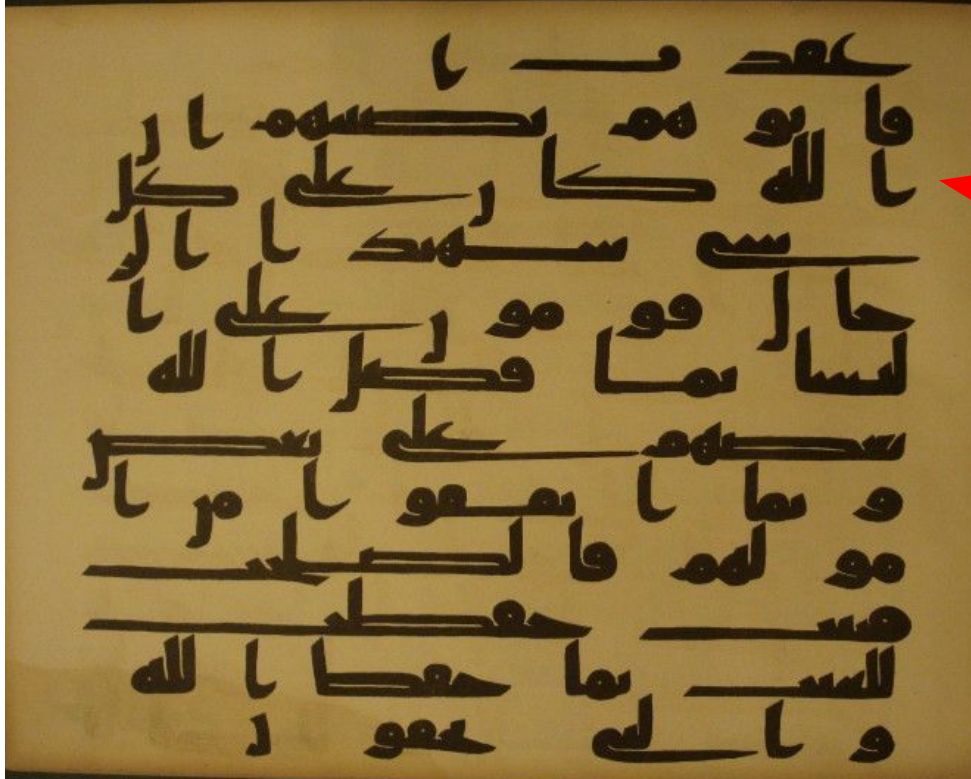 عقدت ا
فاتوهم نصيبهم ان
الله كان على كل
شى شهيدا الر
جال قومون على ا
لنسا بما فضل الله
بعضهم على بعض
وبما انفقوا من ا
مولهم فالصلحت
قنتت حفظت
للغيب بما حفظ الله
والتى تخفون